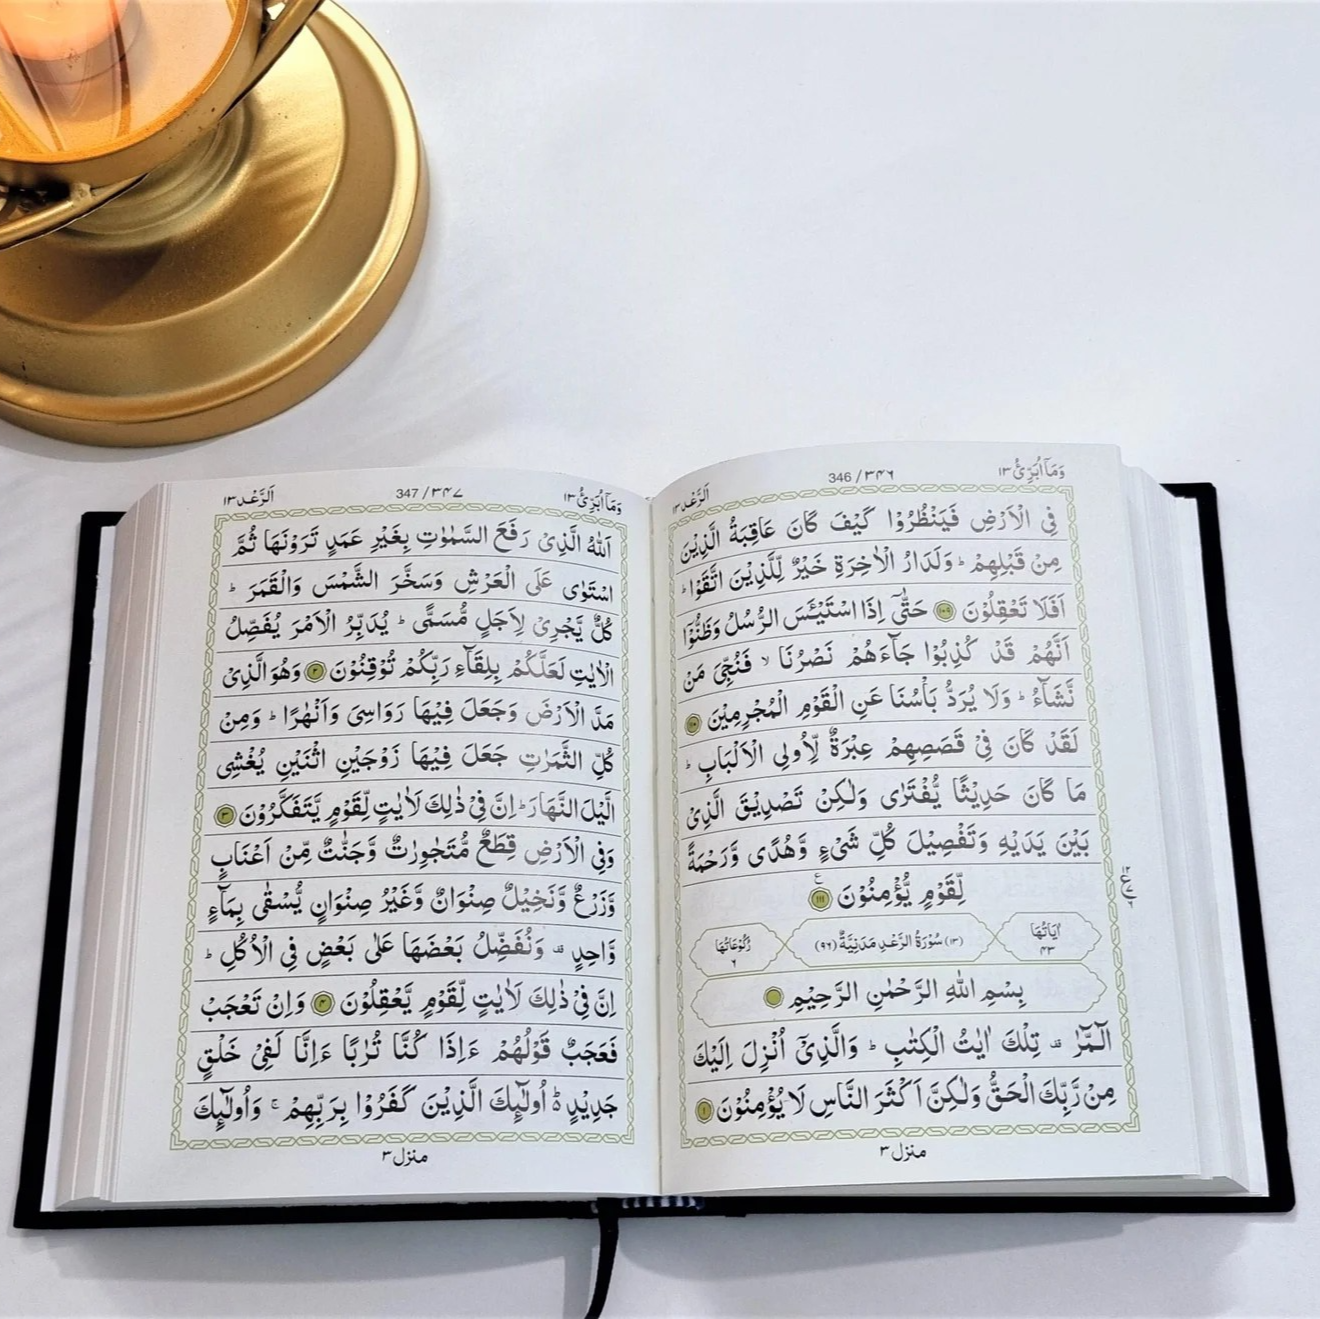 وَمَآ اُبَرِّئُ ١٣
346 / ٣۴٦
اَلرَّعْد ١٣
فِى الْاَرْضِ فَيَنْظُرُوْا كَيْفَ كَانَ عَاقِبَةُ الَّذِيْنَ
مِنْ قَبْلِهِمْ ؕ وَلَدَارُ الْاٰخِرَةِ خَيْرٌ لِّلَّذِيْنَ اتَّقَوْا ؕ
اَفَلَا تَعْقِلُوْنَ ١٠٩ حَتّٰٓى اِذَا اسْتَيْـَٔسَ الرُّسُلُ وَظَنُّوْٓا
اَنَّهُمْ قَدْ كُذِبُوْا جَآءَهُمْ نَصْرُنَا ۙ فَنُجِّىَ مَنْ
نَّشَآءُ ؕ وَلَا يُرَدُّ بَاْسُنَا عَنِ الْقَوْمِ الْمُجْرِمِيْنَ ١١٠
لَقَدْ كَانَ فِىْ قَصَصِهِمْ عِبْرَةٌ لِّاُولِى الْاَلْبَابِ ؕ
مَا كَانَ حَدِيْثًا يُّفْتَرٰى وَلٰكِنْ تَصْدِيْقَ الَّذِىْ
بَيْنَ يَدَيْهِ وَتَفْصِيْلَ كُلِّ شَىْءٍ وَّهُدًى وَّرَحْمَةً
لِّقَوْمٍ يُّؤْمِنُوْنَ ١١١
اٰيَاتُهَا ۴٣
(١٣) سُوْرَةُ الرَّعْدِ مَدَنِيَّةٌ (٩٦)
رُكُوْعَاتُهَا ٦
بِسْمِ اللّٰهِ الرَّحْمٰنِ الرَّحِيْمِ
الٓمّٓرٰ ۚ تِلْكَ اٰيٰتُ الْكِتٰبِ ؕ وَالَّذِىْٓ اُنْزِلَ اِلَيْكَ
مِنْ رَّبِّكَ الْحَقُّ وَلٰكِنَّ اَكْثَرَ النَّاسِ لَا يُؤْمِنُوْنَ ١
منزل ٣
وَمَآ اُبَرِّئُ ١٣
347 / ٣۴٧
اَلرَّعْد ١٣
اَللّٰهُ الَّذِىْ رَفَعَ السَّمٰوٰتِ بِغَيْرِ عَمَدٍ تَرَوْنَهَا ثُمَّ
اسْتَوٰى عَلَى الْعَرْشِ وَسَخَّرَ الشَّمْسَ وَالْقَمَرَ ؕ
كُلٌّ يَّجْرِىْ لِاَجَلٍ مُّسَمًّى ؕ يُدَبِّرُ الْاَمْرَ يُفَصِّلُ
الْاٰيٰتِ لَعَلَّكُمْ بِلِقَآءِ رَبِّكُمْ تُوْقِنُوْنَ ٢ وَهُوَ الَّذِىْ
مَدَّ الْاَرْضَ وَجَعَلَ فِيْهَا رَوَاسِىَ وَاَنْهٰرًا ؕ وَمِنْ
كُلِّ الثَّمَرٰتِ جَعَلَ فِيْهَا زَوْجَيْنِ اثْنَيْنِ يُغْشِى
الَّيْلَ النَّهَارَ ؕ اِنَّ فِىْ ذٰلِكَ لَاٰيٰتٍ لِّقَوْمٍ يَّتَفَكَّرُوْنَ ٣
وَفِى الْاَرْضِ قِطَعٌ مُّتَجٰوِرٰتٌ وَّجَنّٰتٌ مِّنْ اَعْنَابٍ
وَّزَرْعٌ وَّنَخِيْلٌ صِنْوَانٌ وَّغَيْرُ صِنْوَانٍ يُّسْقٰى بِمَآءٍ
وَّاحِدٍ ۟ وَنُفَضِّلُ بَعْضَهَا عَلٰى بَعْضٍ فِى الْاُكُلِ ؕ
اِنَّ فِىْ ذٰلِكَ لَاٰيٰتٍ لِّقَوْمٍ يَّعْقِلُوْنَ ۴ وَاِنْ تَعْجَبْ
فَعَجَبٌ قَوْلُهُمْ ءَاِذَا كُنَّا تُرٰبًا ءَاِنَّا لَفِىْ خَلْقٍ
جَدِيْدٍ ؕ اُولٰٓئِكَ الَّذِيْنَ كَفَرُوْا بِرَبِّهِمْ ۚ وَاُولٰٓئِكَ
منزل ٣